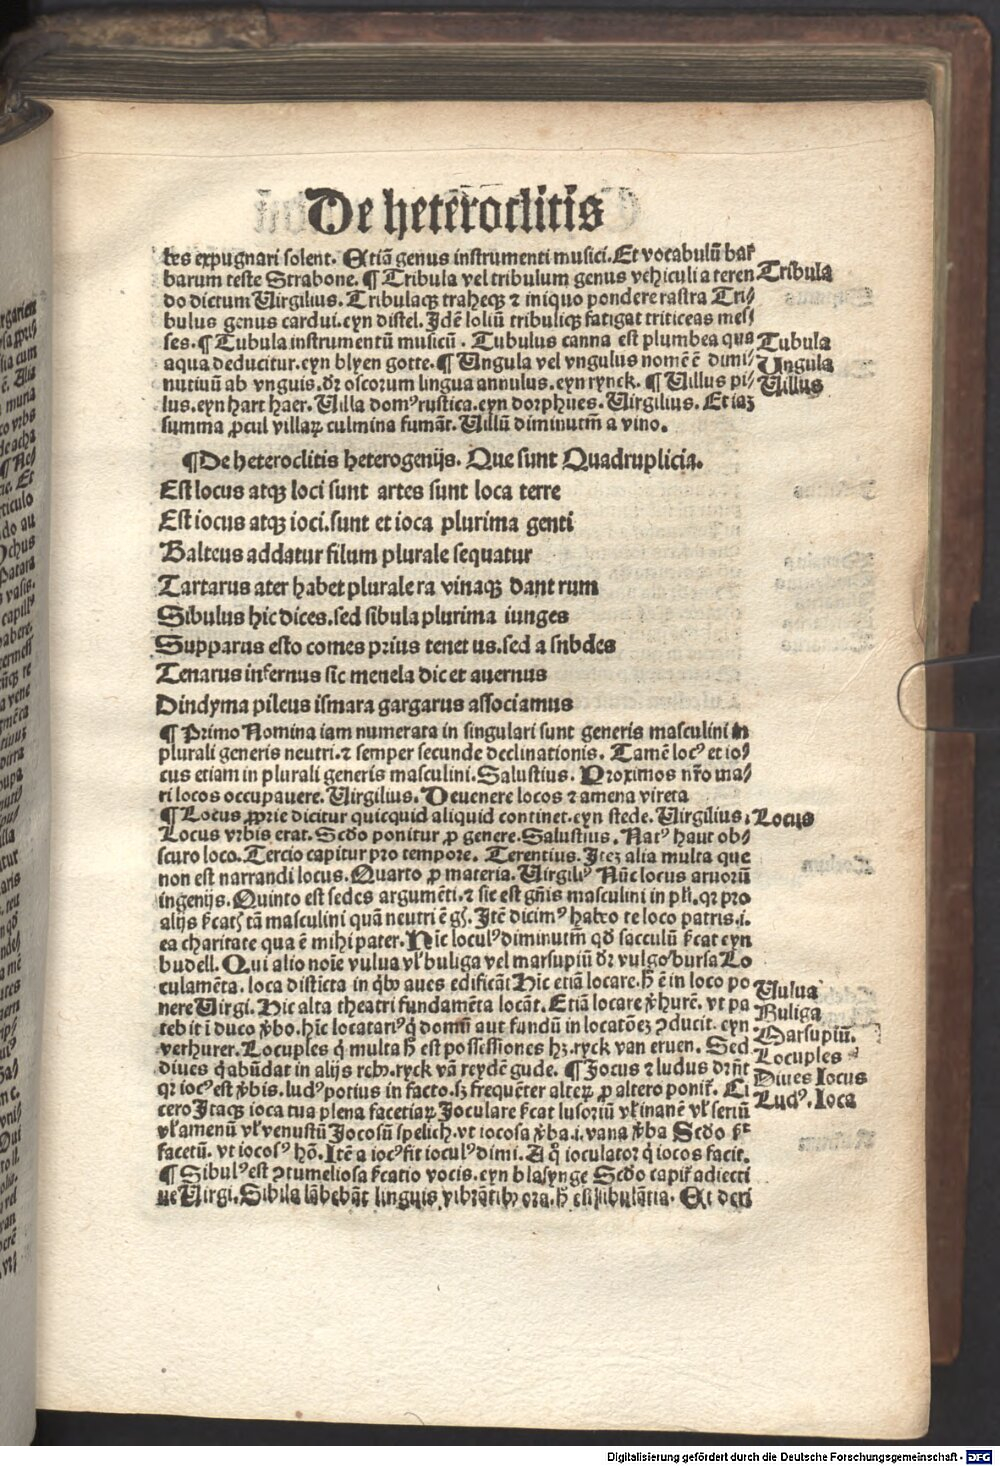 De heteroclitis
tres expugnari solent. Etiā genus instrumenti musici. Et vocabulū bar
barum teste Strabone. ¶ Tribula vel tribulum genus vehiculi a teren
Tribula
do dictum Uirgilius. Tribulaqꝫ traheqꝫ ⁊ iniquo pondere rastra Tri⸗
bulus genus cardui. eyn distel. Jdē loliū tribuliqꝫ fatigat triticeas mes⸗
ses. ¶ Tubula instrumentū musicū. Tubulus canna est plumbea qua
Tubula
aqua deducitur. eyn blyen gotte. ¶ Ungula vel vngulus nomē ē dimi⸗
Ungula
nutiuū ab vnguis. dr̄ oscorum lingua annulus. eyn rynck. ¶ Uillus pi⸗
Uillus
lus. eyn hart haer. Uilla domꝰ rustica. eyn dorphues. Uirgilius. Et iaꝫ
summa ꝓcul villaꝝ culmina fumāt. Uillū diminutm̄ a vino.
¶ De heteroclitis heterogenijs. Que sunt Quadruplicia.
Est locus atqꝫ loci sunt artes sunt loca terre
Est iocus atqꝫ ioci. sunt et ioca plurima genti
Balteus addatur filum plurale sequatur
Tartarus ater habet plurale ra vinaqꝫ dant rum
Sibulus hic dices. sed sibula plurima iunges
Supparus esto comes prius tenet us. sed a snbdes
Tenarus infernus sic menela dic et auernus
Dindyma pileus ismara gargarus associamus
¶ Primo Nomina iam numerata in singulari sunt generis masculini in
plurali generis neutri. ⁊ semper secunde declinationis. Tamē locꝰ et io⸗
cus etiam in plurali generis masculini. Salustius. Proximos nr̄o ma⸗
ri locos occupauere. Uirgilius. Deuenere locos ⁊ amena vireta
¶ Locus ꝓprie dicitur quicquid aliquid continet. eyn stede. Uirgilius.
Locus
Locus vrbis erat. Scd̄o ponitur ꝓ genere. Salustius. Natꝰ haut ob⸗
scuro loco. Tercio capitur pro tempore. Terentius. Jteꝫ alia multa que
non est narrandi locus. Quarto ꝓ materia. Uirgiliꝰ Nūc locus aruorū
ingenijs. Quinto est sedes argumēti. ⁊ sic est gn̄is masculini in pl̄i. qr pro
alijs tā masculini quā neutri ē Jtē dicimꝰ habeo te loco patris. i.
ea charitate qua ē mihi pater. Hīc loculꝰ diminutm̄ qd̄ sacculū eyn
budell. Qui alio noīe vulua vl̄ buliga vel marsupiū dr̄ vulgo bursa Lo
culamēta. loca disticta in aues edificāt Hic etiā locare. est in loco po
Uulua
nere Uirgi. Hic alta theatri fundamēta locāt. Etiā locare ꝟhurē. vt pa
Buliga
teb it ī duco ꝟbo. hīc locatariꝰ domū aut fundū in ꝯducit. eyn
Marsupiū.
verhurer. Locuples multa est possessiones ryck van eruen. Sed
Locuples
diues abūdat in alijs ryck vā reydē gude. ¶ Jocus ⁊ ludus
Diues Jocus
qr iocꝰ est ꝟbis. ludꝰ potius in facto. frequēter ꝓ altero
Ludꝰ. Joca
cero Jtaqꝫ ioca tua plena facetiaꝝ Joculare lusoriū vl̄ inanē vl̄ seriū
vl̄ amenū vl̄ venustū Jocosū spelich. vt iocosa ꝟba. i. vana ꝟba Scd̄o
facetū. vt iocosꝰ hō. Jtē a iocꝰ fit ioculꝰ dimi. A ioculator iocos facit.
¶ Sibulꝰ est ꝯtumeliosa vocis. eyn blasynge Scd̄o adiecti
ue Uirgi. Sibila lābebāt linguis vibrātibꝰ ora. Et deri